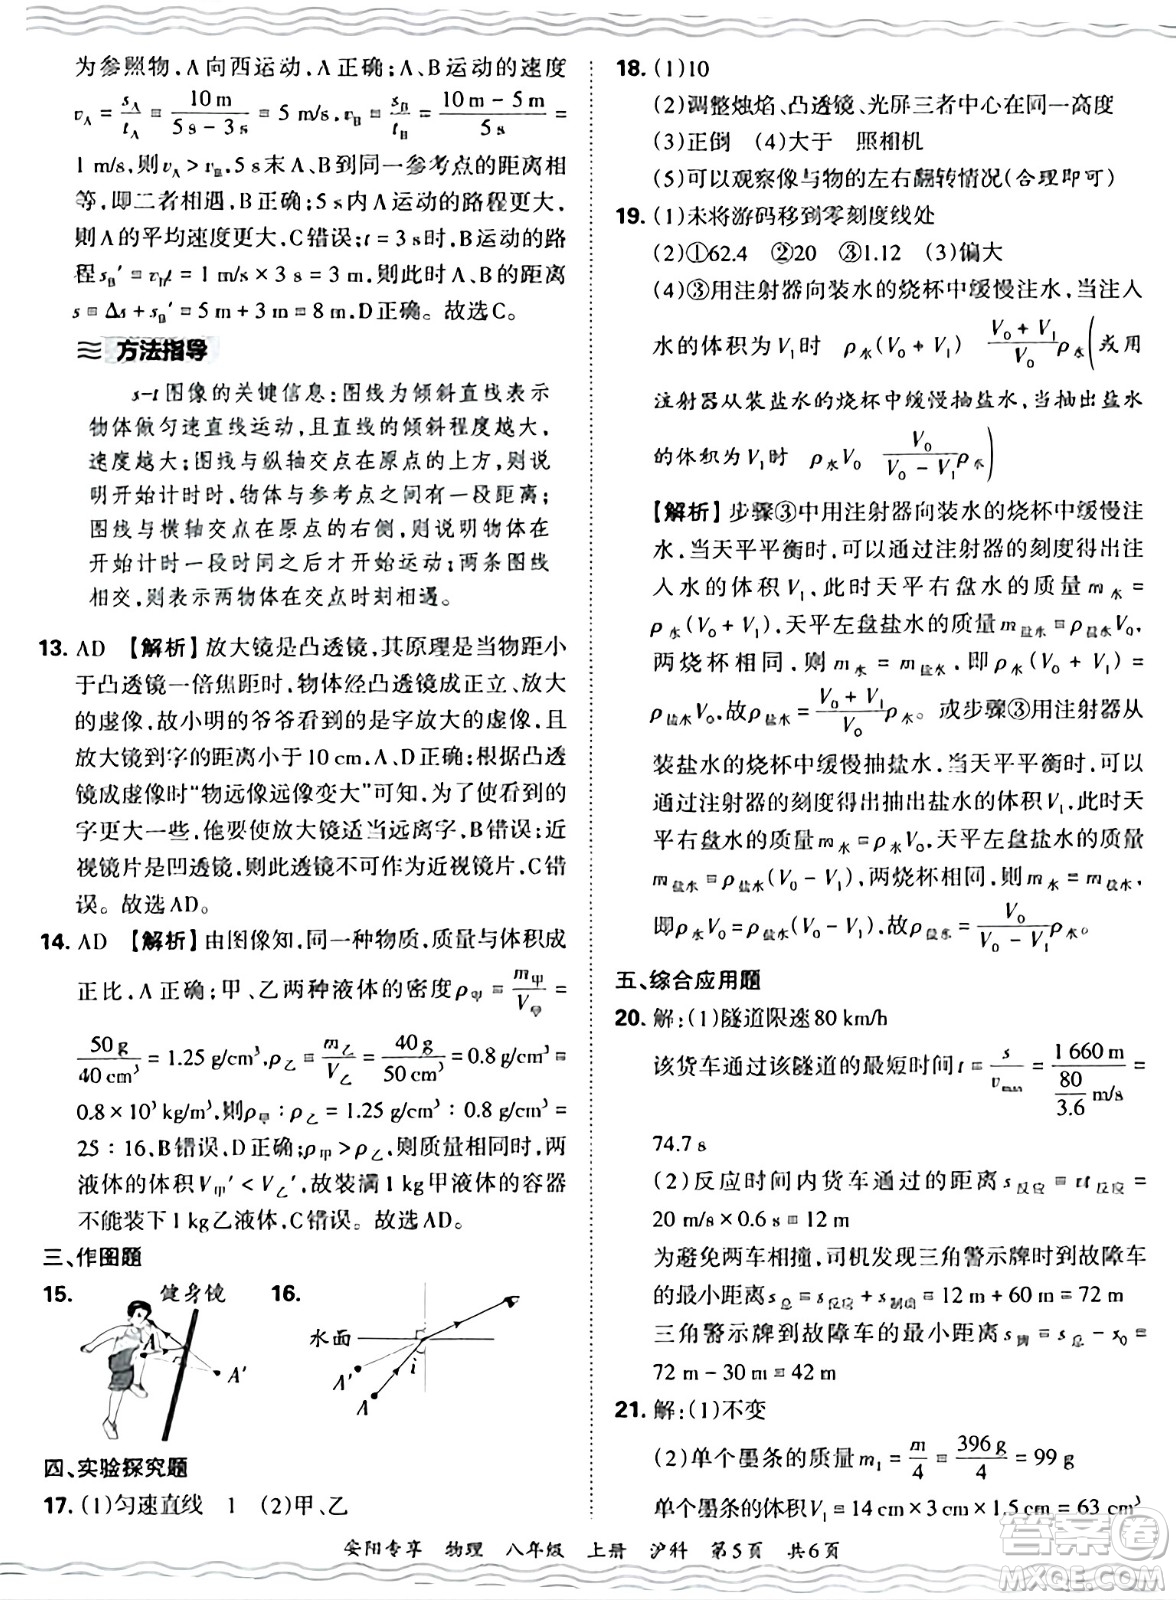 为参照物,A向西运动,A正确;A、B运动的速度
v_A = s_A/t_A = 10 m/(5 s - 3 s) = 5 m/s,v_B = s_B/t_B = (10 m - 5 m)/5 s =
1 m/s,则v_A > v_B,5 s末A、B到同一参考点的距离相
等,即二者相遇,B正确;5 s内A运动的路程大于B,
则A的平均速度更大,C错误;t = 3 s时,B运动的路
程s_B′ = v_B t = 1 m/s × 3 s = 3 m,则此时A、B的距离
s = Δs + s_B′ = 5 m + 3 m = 8 m,D正确。故选C。
方法指导
s-t图像的关键信息:图线为倾斜直线,表示
物体做匀速直线运动,且直线的倾斜程度越大,
速度越大;图线与纵轴交点在原点的上方,则说
明开始计时时,物体与参考点之间有一段距离;
图线与横轴交点在原点的右侧,则说明物体在
开始计时一段时间之后才开始运动;两条图线
相交,则表示两物体在交点时刻相遇。
13. AD 【解析】放大镜是凸透镜,其原理是当物距小
于凸透镜一倍焦距时,物体经凸透镜成正立、放大
的虚像,故小明的爷爷看到的是字放大的虚像,且
放大镜到字的距离小于10 cm,A、D正确;根据凸透
镜成虚像时“物远像远像变大”可知,为了使看到的
字更大一些,他要使放大镜适当远离字,B错误;近
视镜片是凹透镜,则此透镜不可作为近视镜片,C错
误。故选AD。
14. AD 【解析】由图像知,同一种物质,质量与体积成
正比,A正确;甲、乙两种液体的密度ρ_甲 = m_甲/V_甲 =
50 g/40 cm³ = 1.25 g/cm³,ρ_乙 = m_乙/V_乙 = 40 g/50 cm³ = 0.8 g/cm³ =
0.8 × 10³ kg/m³,则ρ_甲 : ρ_乙 = 1.25 g/cm³ : 0.8 g/cm³ =
25 : 16,B错误,D正确;ρ_甲 > ρ_乙,则质量相同时,两
液体的体积V_甲′ < V_乙′,故装满1 kg甲液体的容器
不能装下1 kg乙液体,C错误。故选AD。
三、作图题
15. 健身镜 A A′
16. 水面 A′ A i
四、实验探究题
17. (1)匀速直线 1 (2)甲、乙
18. (1)10
(2)调整烛焰、凸透镜、光屏三者中心在同一高度
(3)正倒 (4)大于 照相机
(5)可以观察像与物的左右翻转情况(合理即可)
19. (1)未将游码移到零刻度线处
(2)①62.4 ②20 ③1.12 (3)偏大
(4)③用注射器向装水的烧杯中缓慢注水,当注入
水的体积为V₁时 ρ_水(V₀ + V₁) (V₀ + V₁)/V₀ ρ_水(或用
注射器从装盐水的烧杯中缓慢抽盐水,当抽出盐水
的体积为V₁时 ρ_水V₀ V₀/(V₀ - V₁) ρ_水)
【解析】步骤③中用注射器向装水的烧杯中缓慢注
水,当天平平衡时,可以通过注射器的刻度得出注
入水的体积V₁,此时天平右盘水的质量m_水 =
ρ_水(V₀ + V₁),天平左盘盐水的质量m_盐水 = ρ_盐水V₀,
两烧杯相同,则m_水 = m_盐水,即ρ_水(V₀ + V₁) =
ρ_盐水V₀,故ρ_盐水 = (V₀ + V₁)/V₀ ρ_水。或步骤③用注射器从
装盐水的烧杯中缓慢抽盐水,当天平平衡时,可以
通过注射器的刻度得出抽出盐水的体积V₁,此时天
平右盘水的质量m_水 = ρ_水V₀,天平左盘盐水的质量
m_盐水 = ρ_盐水(V₀ - V₁),两烧杯相同,则m_水 = m_盐水,
即ρ_水V₀ = ρ_盐水(V₀ - V₁),故ρ_盐水 = V₀/(V₀ - V₁) ρ_水。
五、综合应用题
20. 解:(1)隧道限速80 km/h
该货车通过该隧道的最短时间t = s/v_max = 1 660 m/(80/3.6 m/s) =
74.7 s
(2)反应时间内货车通过的距离s_反应 = vt_反应 =
20 m/s × 0.6 s = 12 m
为避免两车相撞,司机发现三角警示牌时到故障车
的最小距离s_总 = s_反应 + s_制动 = 12 m + 60 m = 72 m
三角警示牌到故障车的最小距离s_牌 = s_总 - s₀ =
72 m - 30 m = 42 m
21. 解:(1)不变
(2)单个墨条的质量m₁ = m/4 = 396 g/4 = 99 g
单个墨条的体积V₁ = 14 cm × 3 cm × 1.5 cm = 63 cm³
安阳专享 物理 八年级 上册 沪科 第5页 共6页
答案卷
MXQE.COM